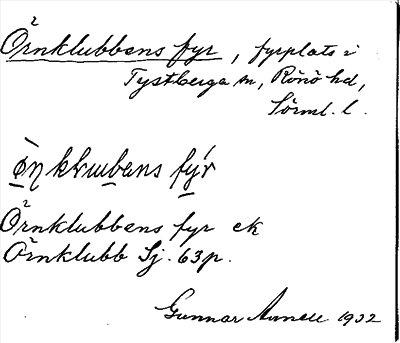 Örnklubbens fyr, fyrplats i
Tystberga sn, Rönö hd,
Sörml. l.
fy̌r
Örnklubbens fyr ek
Örnklubb Sj. 63p.
Gunnar 1932